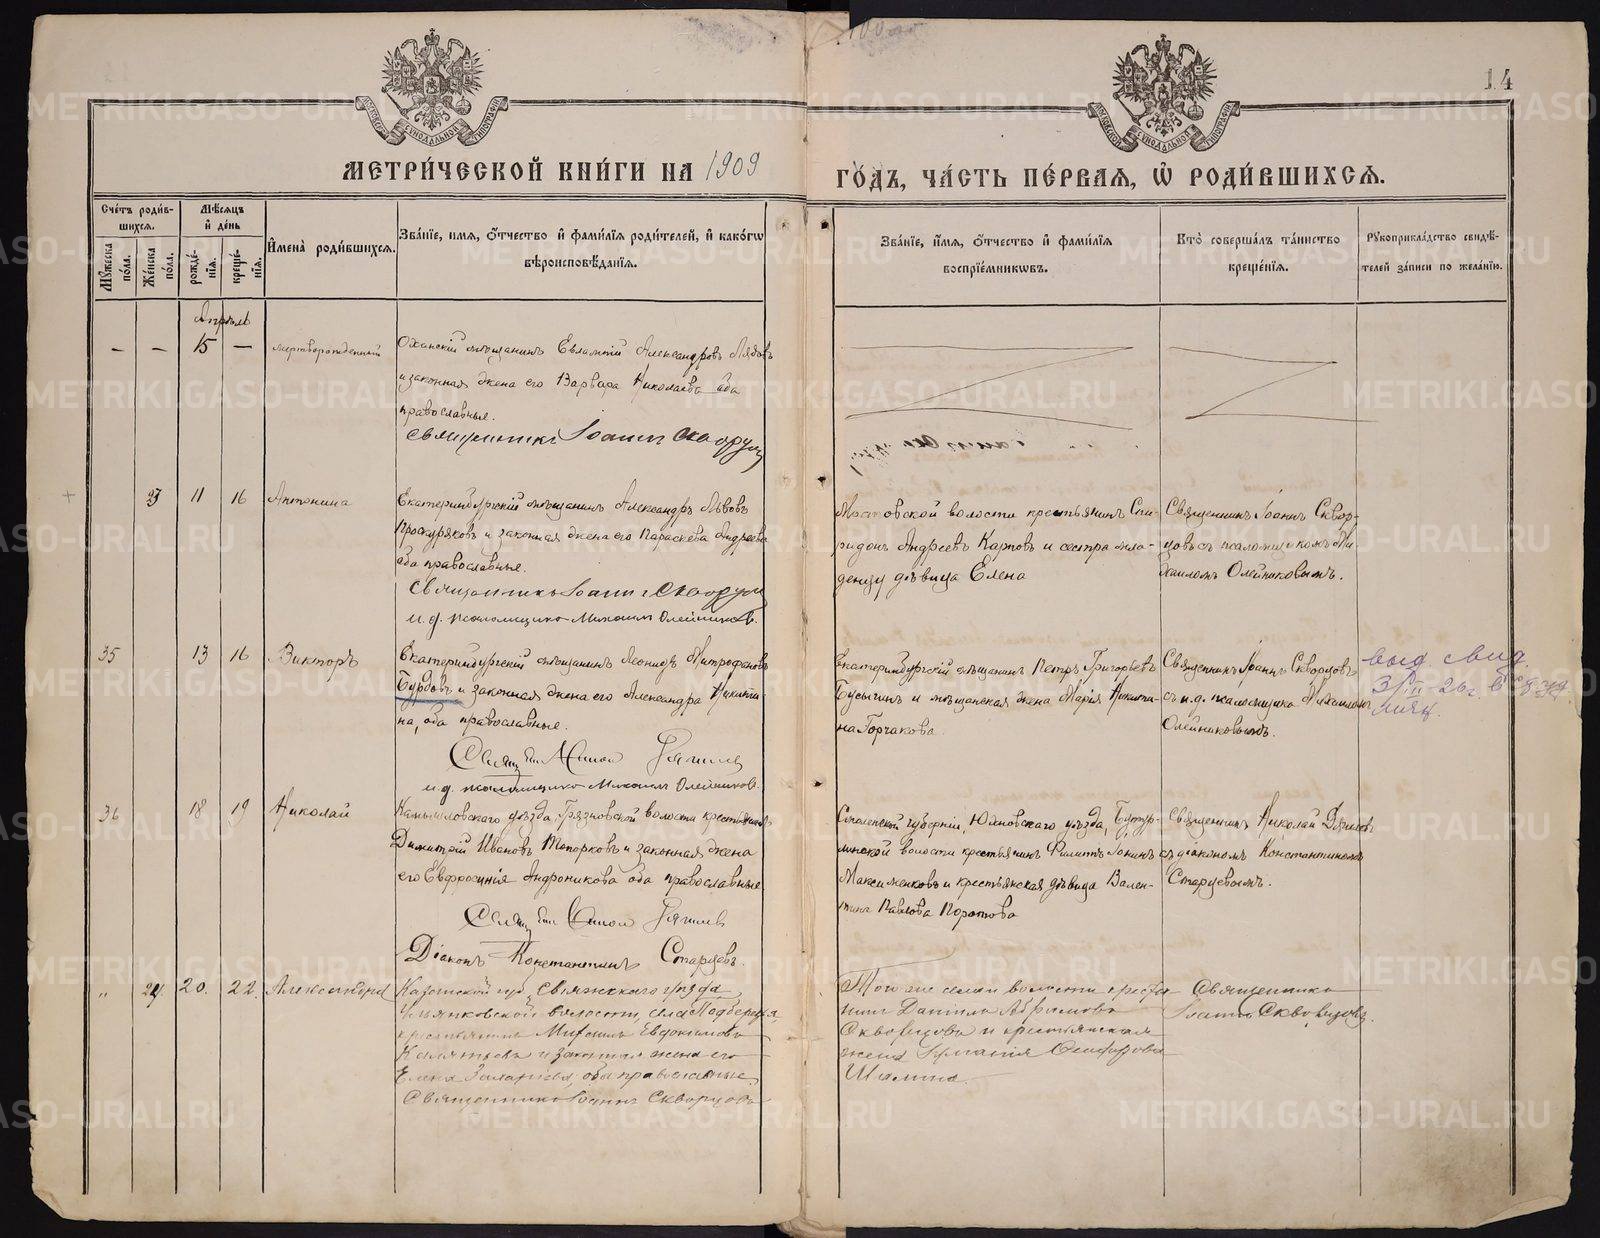 14
МЕТРИ́ЧЕСКОЙ КНИ́ГИ НА 1909
ГО́ДЪ, ЧА́СТЬ ПЕ́РВАЯ, Ѡ҆ РОДИ́ВШИХСЯ.
Сче́тъ роди́в-
шихся.
Мѣ́сяцъ
и҆ де́нь
Мꙋ́жеска по́ла.
Же́нска по́ла.
рожде́-
нїѧ.
креще́-
нїѧ.
И҆мена̀ роди́вшихся.
Зва́нїе, имя, ѻ҆́тчество и҆ фами́лїя роди́телей, и҆ како́гѡ
вѣроисповѣ́данїя.
Зва́нїе, и҆́мя, ѻ҆́тчество и҆ фами́лїя
воспрїе́мниковъ.
Кто̀ соверша́лъ та́инство
креще́нїя.
Рꙋкоприкла́дство свидѣ́-
телей за́писи по жела́нїю.
Апрѣль
— — 15 — мертворожденный
Оханскій мѣщанинъ Евлампій Александровъ Лядовъ
и законная жена его Варвара Николаева оба
православные.
Священникъ Іоаннъ Скворцов
23 11 16 Антонина
Екатеринбургскій мѣщанинъ Александръ Львовъ
Проскуряковъ и законная жена его Параскева Андреева
оба православные.
Священникъ Іоаннъ Скворцов
и. д. псаломщика Михаилъ Олейниковъ.
волости крестьянинъ Спи-
ридонъ Андреевъ Карповъ и сестра мла-
денцу дѣвица Елена
Священникъ Іоаннъ Сквор-
цовъ съ псаломщикомъ Ми-
хаиломъ Олейниковымъ.
35 13 16 Викторъ
Екатеринбургскій мѣщанинъ Леонидъ Митрофановъ
Бурдовъ и законная жена его Александра Никити-
на, оба православные.
и. д. псаломщика Михаилъ Олейниковъ.
Екатеринбургскій мѣщанинъ Петръ Григорьевъ
Бусыгинъ и мѣщанская жена Марія Никити-
на Горчакова.
Священникъ Іоаннъ Скворцовъ
съ и. д. псаломщика Михаиломъ
Олейниковымъ.
выд. свид.
36 18 19 Николай
Камышловскаго уѣзда, Грязновской волости крестьянинъ
Димитрій Ивановъ Топорковъ и законная жена
его Евфросинія Андроникова оба православные
Діаконъ Константинъ Старцевъ.
Смоленской губерніи, Юхновскаго уѣзда, Бутур-
линской волости крестьянинъ Филиппъ Іонинъ
Максименковъ и крестьянская дѣвица Вален-
тина Павлова Поротова
Священникъ Николай
съ діакономъ Константиномъ
Старцевымъ.
" 24 20. 22. Александра
Казанской гу. Свіяжскаго уѣзда
волости, села Подберезья,
крестьянинъ Михаилъ Евдокимовъ
и законная жена его
Елена оба православные.
Священникъ Іоаннъ Скворцовъ
Того же села и волости кресть-
нинъ Данилъ Абрамовъ
Скворцовъ и крестьянская
жена
Шалина.
Священникъ
Іоаннъ Скворцовъ.
METRIKI.GASO-URAL.RU